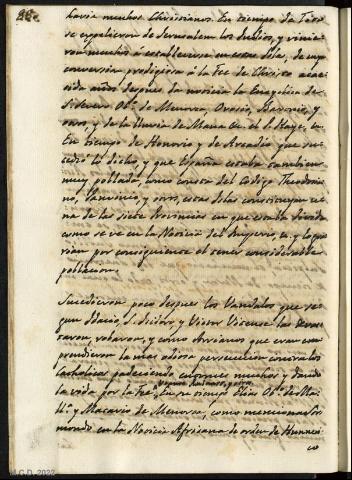 havia muchos Christianos. En tiempo de Tito
se expelieron de Jerusalem los Judios, y vinie
ron muchos á establecerse en estas Islas, de cuya
conversion prodigiosa á la Fee de Christo acae
cida años despues da noticia la Encyclica de
S. Severo Ob.º de Menorca, Orosio, Baronio, y
otros, y de la lluvia de Mana &c. el P. Haye, &.
En tiempo de Honorio y de Arcadio que su
cedio lo dicho, y que España estaba tambien
muy poblada, como consta del Codigo Theodosia
no, Panvinio, y otros, estas Islas constituyan u
na de las siete Provincias en que estaba dividida
como se ve en la Noticia del Imperio, &. y logra
rian por consiguiente el tener considerable
poblacion.
Sucedieron poco despues los Vandalos que se
gun Idacio, S. Isidoro, y Victor Vitense las
varon, robaron, y como Arrianos que eran em
prendieron la mas odiosa persecucion contra los
Catholicos padeciendo enormes muchos y dando
la vida por la Fee, En su tiempo Elias Ob.º de Ma
ll.ª y Macario de Menorca, como mencionados
mondo en la Noticia Africana de orden de Hunneri
co
M.C.D. 2022